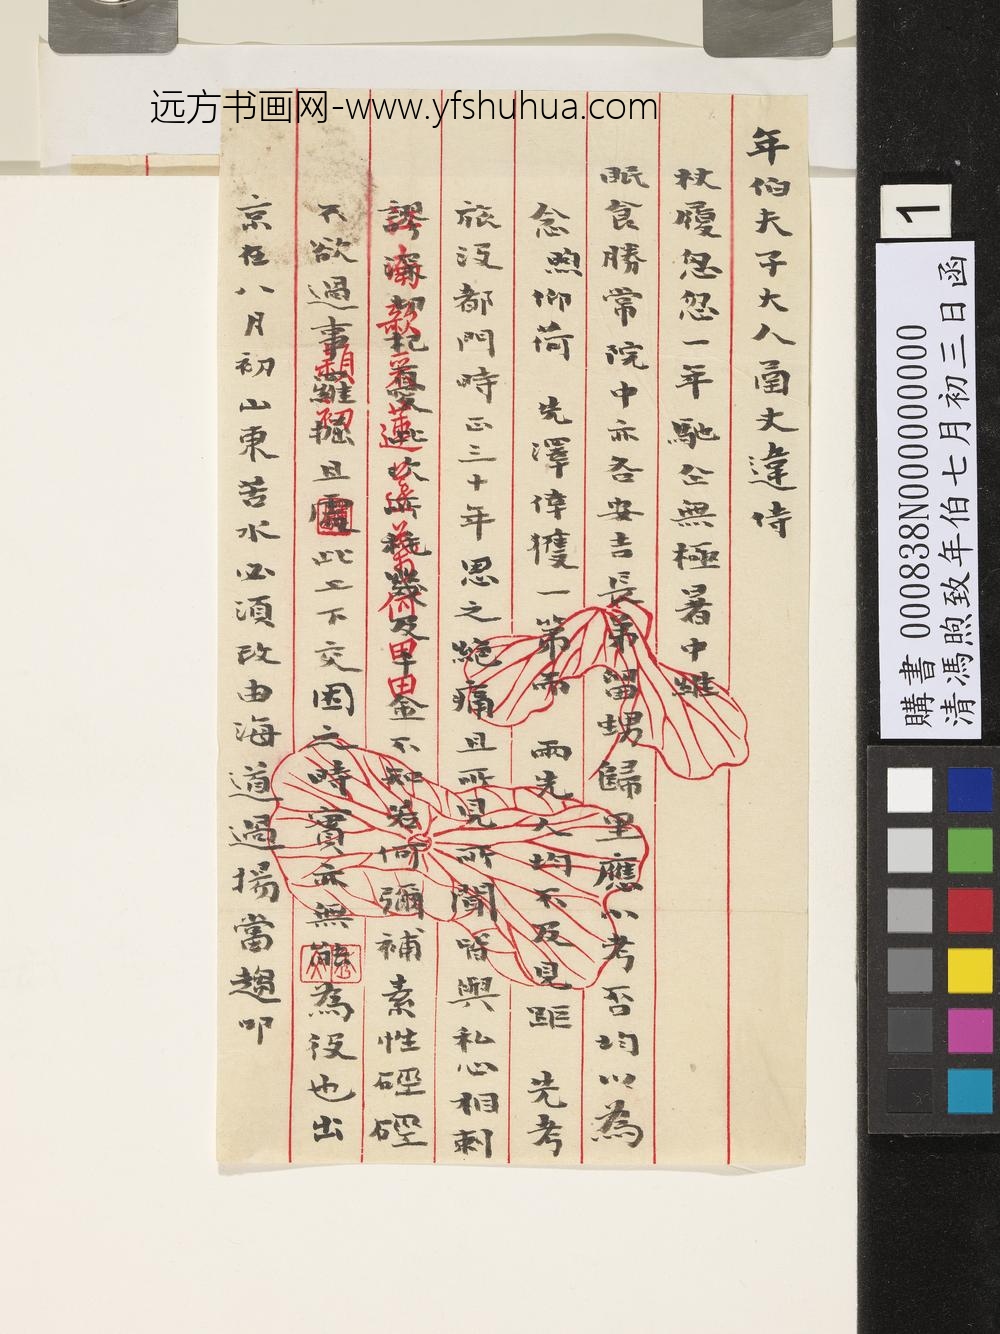 远方书画网-www.yfshuhua.com
年伯夫子大人函丈違侍
杖履忽忽一年馳企無極暑中維
眠食勝常院中亦各安吉長弟留甥歸里應小考否均以為
念煦仰荷 先澤倖獲一第而 兩先人均不及見距 先考
旅沒都門時正三十年思之絕痛且所見所聞皆與私心相刺
謬深
此次
及千金不知若何彌補素性硜硜
不欲過事羅掘且處此上下交困之時實亦無能為役也出
京在八月初山東苦水必須改由海道過揚當趨叩
1
購書 000838N000000000
清馮煦致年伯七月初三日函